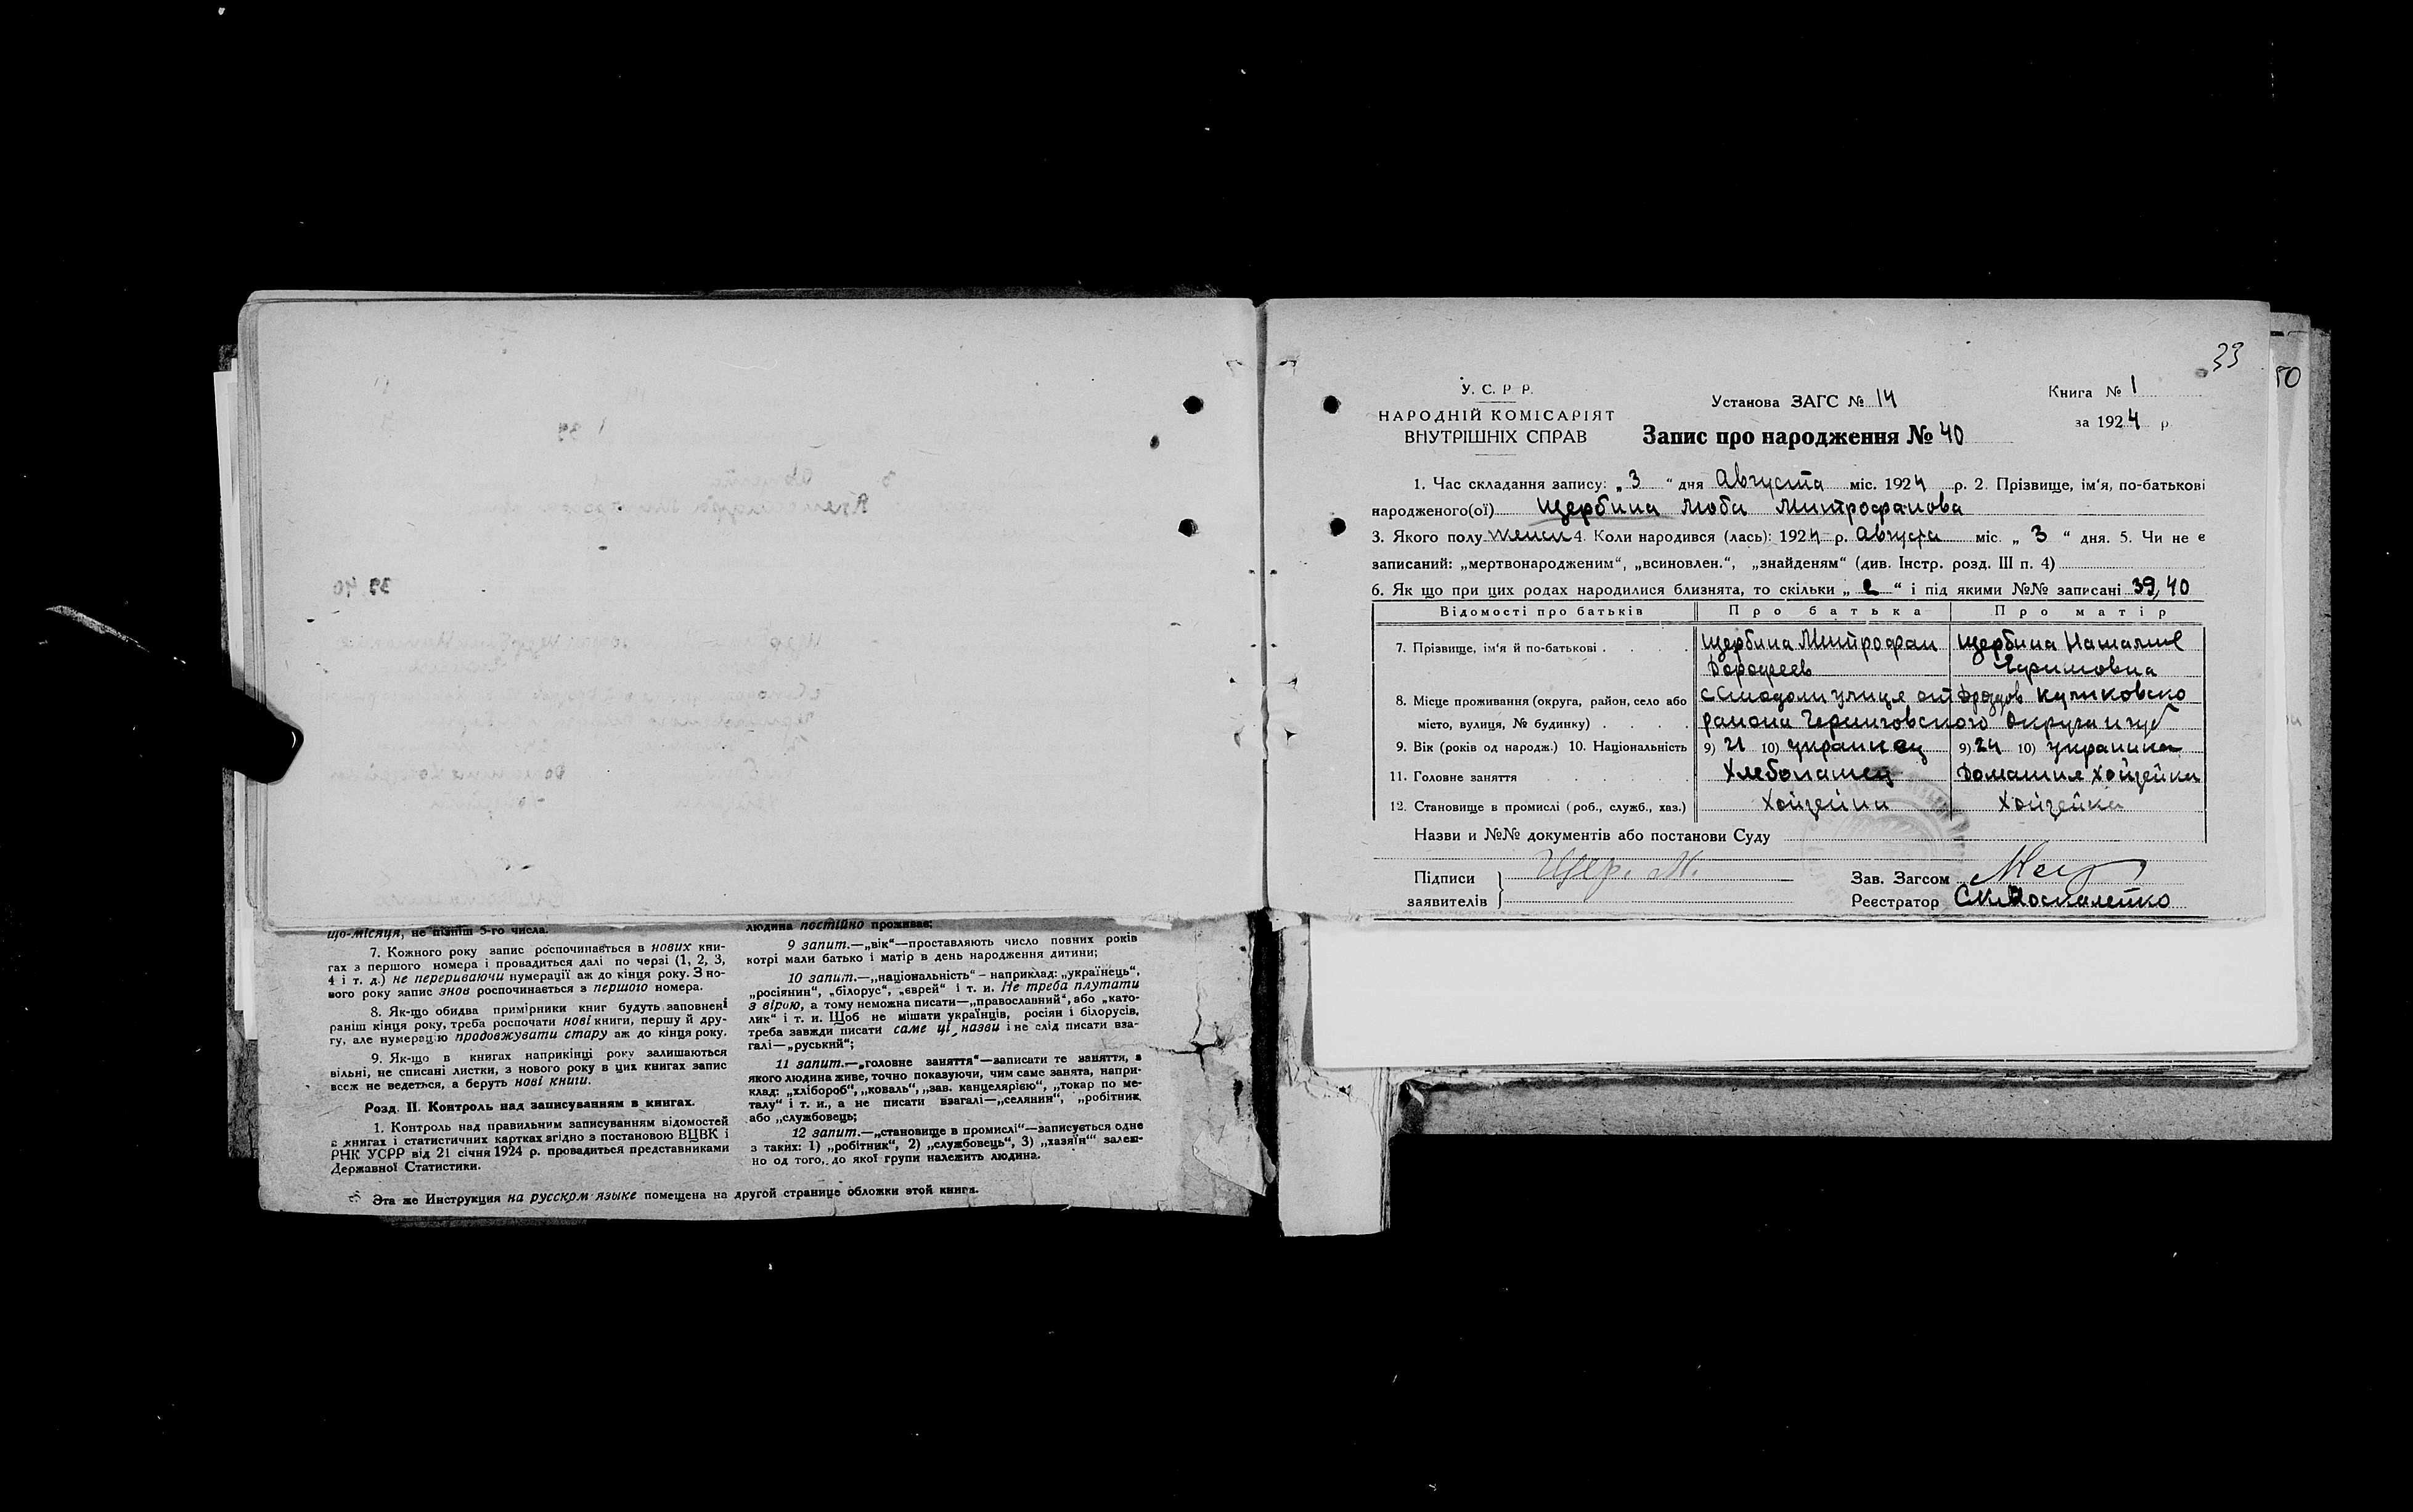 що-місяця, не пізніш 5-го числа.
7. Кожного року запис роспочинається в нових кни-
гах з першого номера і провадиться далі по черзі (1, 2, 3,
4 і т. д.) не перериваючи нумерації аж до кінця року. З но-
вого року запис знов роспочинається з першого номера.
8. Як-що обидва примірники книг будуть заповнені
раніш кінця року, треба роспочати нові книги, першу й дру-
гу, але нумерацію продовжувати стару аж до кінця року.
9. Як-що в книгах наприкінці року залишаються
вільні, не списані листки, з нового року в цих книгах запис
всеж не ведеться, а беруть нові книги.
Розд. II. Контроль над записуванням в книгах.
1. Контроль над правильним записуванням відомостей
в книгах і статистичних картках згідно з постановою ВЦВК і
РНК УСРР від 21 січня 1924 р. провадиться представниками
Державної Статистики.
людина постійно проживає;
9 запит.—„вік“—проставляють число повних років
котрі мали батько і матір в день народження дитини;
10 запит.—„національність“ – наприклад: „українець“,
„росіянин“, „білорус“, „єврей“ і т. и. Не треба плутати
з вірою, а тому неможна писати—„православний“, або „като-
лик“ і т. и. Щоб не мішати українців, росіян і білорусів,
треба завжди писати саме ці назви і не слід писати вза-
галі—„руський“;
11 запит.—„головне заняття“—записати те заняття, з
якого людина живе, точно показуючи, чим саме занята, напри-
клад: „хлібороб“, „коваль“, „зав. канцелярією“, „токар по ме-
талу“ і т. и., а не писати взагалі—„селянин“, „робітник
або „службовець;
12 запит.—„становище в промислі“—записується одне
з таких: 1) „робітник“, 2) „службовець“, 3) „хазяїн“ залеж-
но од того, до якої групи належить людина.
Эта же Инструкция на русском языке помещена на другой странице обложки этой книги.
33
50
У. С. Р. Р.
НАРОДНІЙ КОМІСАРІЯТ
ВНУТРІШНІХ СПРАВ
Установа ЗАГС № 14
Запис про народження № 40
Книга № 1
за 1924 р.
1. Час складання запису: „ 3 “ дня Августа міс. 1924 р. 2. Прізвище, ім‘я, по-батькові
народженого(ої) Щербина Люба Митрофанова
3. Якого полу женск 4. Коли народився (лась): 1924 р. Августа міс. „ 3 “ дня. 5. Чи не є
записаний: „мертвонародженим“, „всиновлен.“, „знайденям“ (див. Інстр. розд. III п. 4)
6. Як що при цих родах народилися близнята, то скільки „ 2 “ і під якими №№ записані 39, 40
Відомості про батьків Про батька Про матір
7. Прізвище, ім‘я й по-батькові Щербина Митрофан Дорофеев Щербина Наталия Ефимовна
8. Місце проживання (округа, район, село або
місто, вулиця, № будинку)
Дроздов Куликовско
района Черниговского Округа и губ
9. Вік (років од народж.) 10. Національність 9) 21 10) украинец 9) 24 10) украинка
11. Головне заняття Хлебопашец Домашня Хойзейка
12. Становище в промислі (роб., служб., хаз.) Хойзейин Хойзейка
Назви и №№ документів або постанови Суду
Підписи
заявителів
Щер. М.
Зав. Загсом
Реєстратор